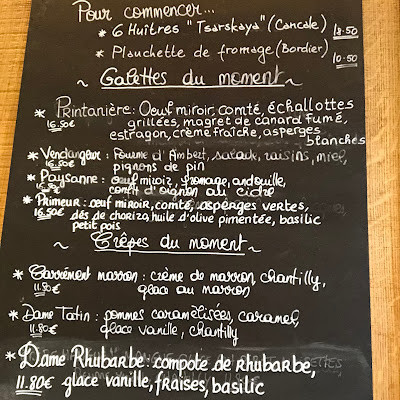 Pour commencer...
* 6 Huîtres "Tsarskaya" (Cancale) 18.50
* Planchette de fromage (Bordier) 10.50
~ Galettes du moment ~
* Printanière: Oeuf miroir, comté, échallottes
16.50€ grillées, magret de canard fumé,
estragon, crème fraîche, asperges
blanches
* Vendangeur: Fourme d'Ambert, salade, raisins, miel,
16.50€ pignons de pin
* Paysanne: œuf miroir, fromage, andouille,
confit d'oignon au cidre
* Primeur: œuf miroir, comté, asperges vertes,
16.50€ dés de chorizo, huile d'olive pimentée, basilic
petit pois
~ Crêpes du moment ~
* Carrément marron: crème de marron, chantilly,
11.80€ glace au marron
* Dame Tatin: pommes caramélisées, caramel,
11.80€ glace vanille, chantilly
* Dame Rhubarbe: compote de rhubarbe,
11.80€ glace vanille, fraises, basilic